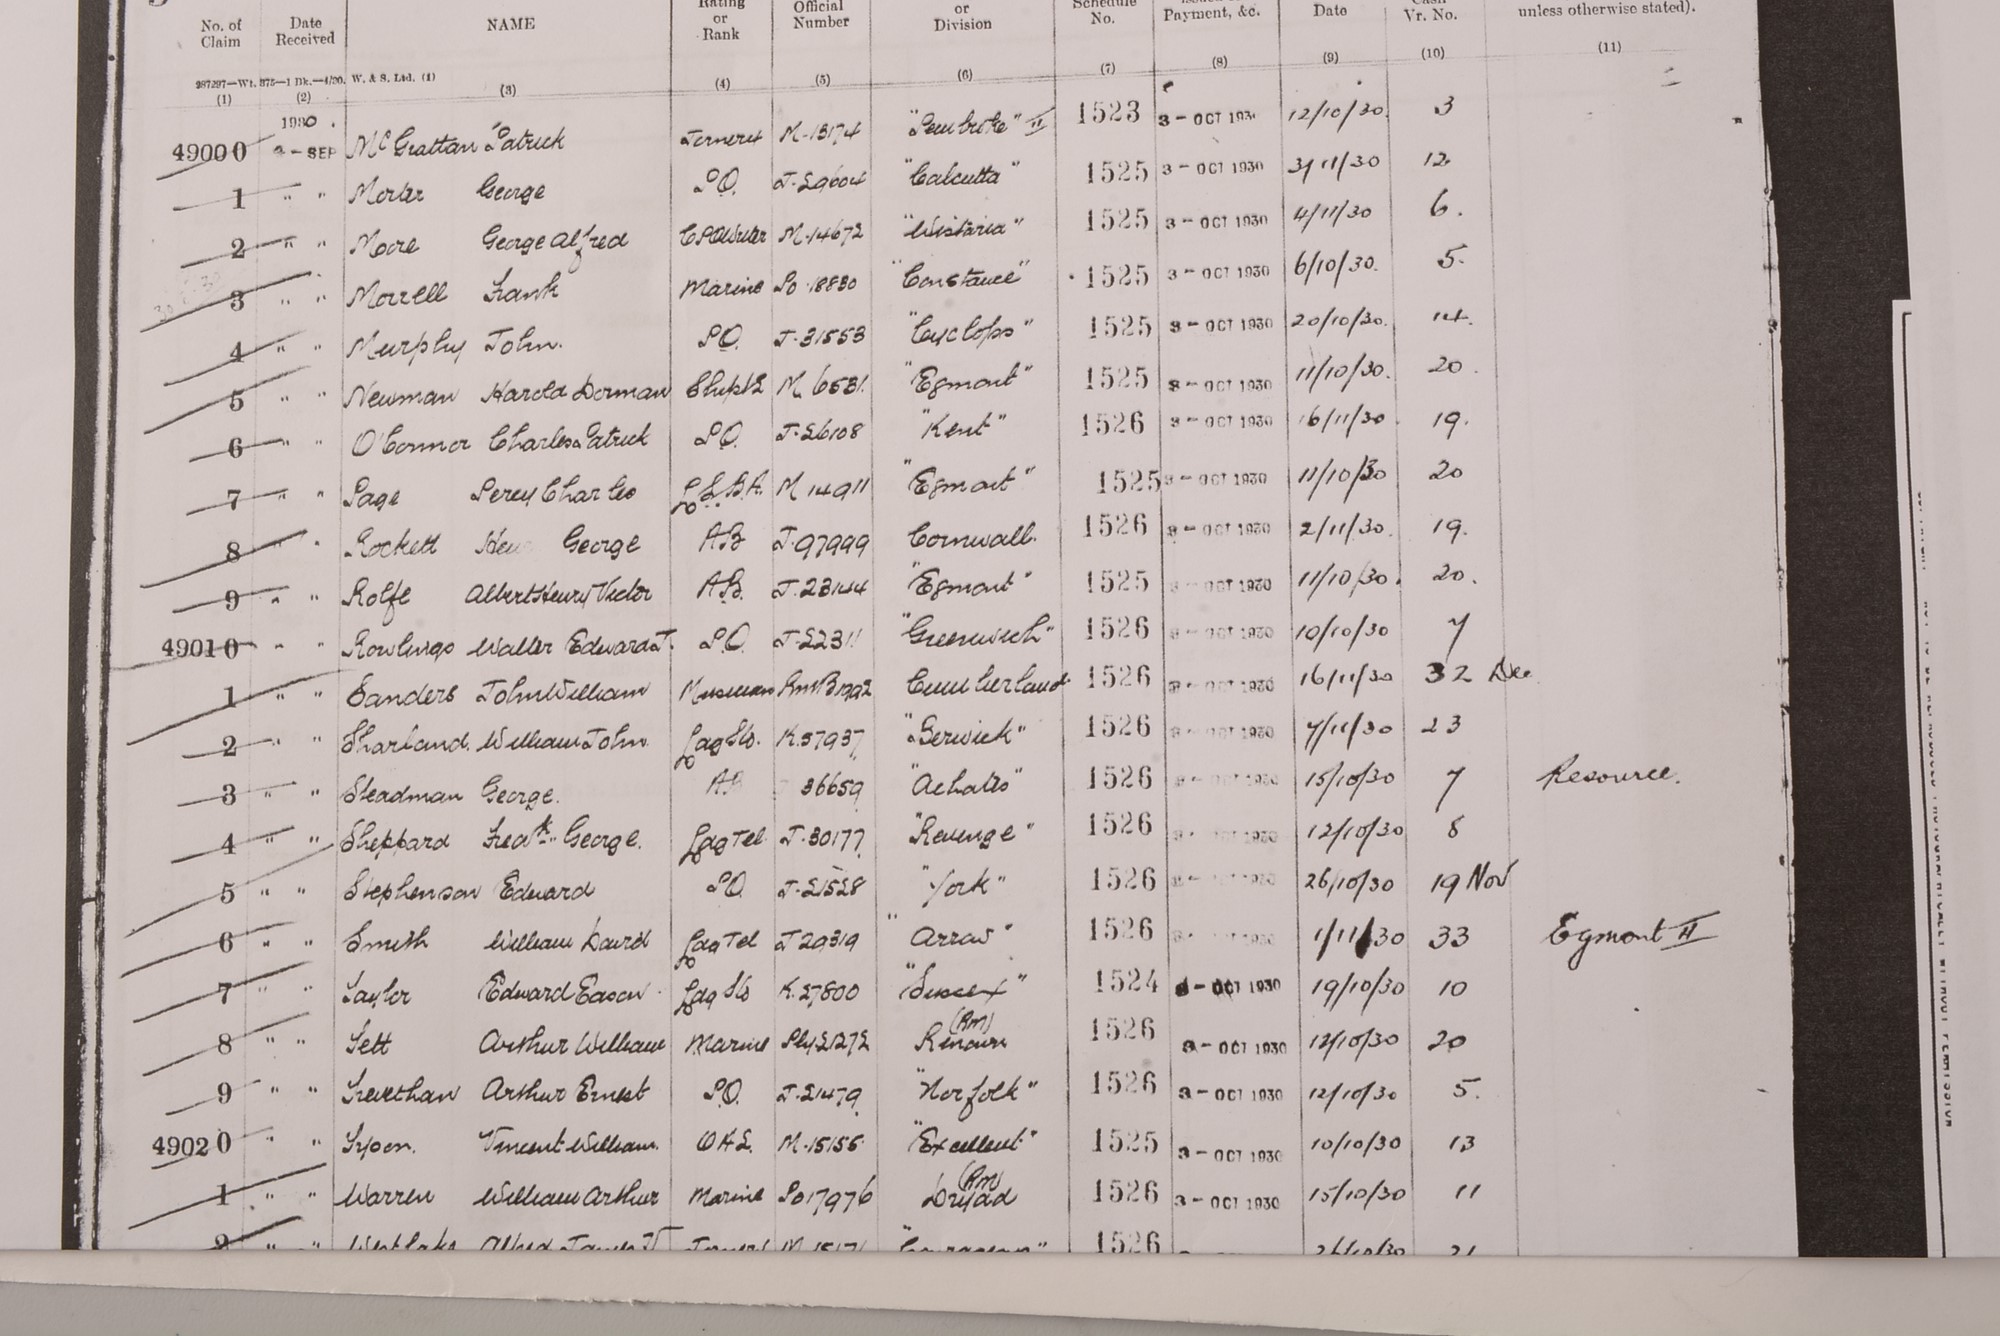 No. of Claim Date Received NAME Rating or Rank Official Number or Division Schedule No. Payment, &c. Date Cash Vr. No. unless otherwise stated).
287297—Wt. 375—1 Bk.—4/30. W. & S. Ltd. (1)
(1) (2) (3) (4) (5) (6) (7) (8) (9) (10) (11)
1930
49000 3 - SEP McGrattan Patrick M-13174 "Pembroke" II 1523 3 - OCT 1930 12/10/30. 3
1 " " George P.O. J-29604 "Calcutta" 1525 3 - OCT 1930 3/11/30 12
2 " " Moore George Alfred CPOWriter M-14672 "Wistaria" 1525 3 - OCT 1930 4/11/30 6.
3 " " Morrell Frank Marine Po-18830 "Constance" 1525 3 - OCT 1930 6/10/30. 5.
4 " " Murphy John. P.O. J-31553 "Cyclops" 1525 3 - OCT 1930 20/10/30. 14.
5 " " Newman Harold Dorman M 6531. "Egmont" 1525 3 - OCT 1930 11/10/30. 20.
6 " " O'Connor Charles Patrick P.O. J-26108 "Kent" 1526 3 - OCT 1930 16/11/30. 19.
7 " " Page Percy Charles M 14911 "Egmont" 1525 3 - OCT 1930 11/10/30 20
8 " " Rockett George AB J-97999 Cornwall. 1526 3 - OCT 1930 2/11/30. 19.
9 " " Rolfe Albert Henry Victor A.B. J-23144 "Egmont" 1525 3 - OCT 1930 11/10/30. 20.
49010 " " Rowlings Walter Edward J. P.O. J-22311 "Greenwich" 1526 3 - OCT 1930 10/10/30 7
1 " " Sanders John William Musician RMB1992 Cumberland 1526 3 - OCT 1930 16/11/30 32 Dec
2 " " Sharland. William John. Ldg Sto. K.57937 "Berwick" 1526 3 - OCT 1930 7/11/30 23
3 " " Steadman George. AB 36659 "Achates" 1526 3 - OCT 1930 15/10/30 7 Resource.
4 " " Sheppard Fredk. George. Ldg Tel J-30177 "Revenge" 1526 3 - OCT 1930 12/10/30 8
5 " " Stephenson Edward P.O. J-21528 "York" 1526 3 - OCT 1930 26/10/30 19 Nov
6 " " Smith William David Ldg Tel J 29319 "Arrow" 1526 3 - OCT 1930 1/11/30 33 Egmont II
7 " " Taylor Edward Eason Ldg Sto K.27800 "Sussex" 1524 3 - OCT 1930 19/10/30 10
8 " " Tett Arthur William Marine Ply 21272 Renown (RM) 1526 3 - OCT 1930 12/10/30 20
9 " " Trevethan Arthur Ernest P.O. J-21479 "Norfolk" 1526 3 - OCT 1930 12/10/30 5.
49020 " " Vincent William. M-15155 "Excellent" 1525 3 - OCT 1930 10/10/30 13
1 " " Warren William Arthur Marine Po17976 Dryad (RM) 1526 3 - OCT 1930 15/10/30 11
2 " " Westlake Alfred James "Courageous" 1526